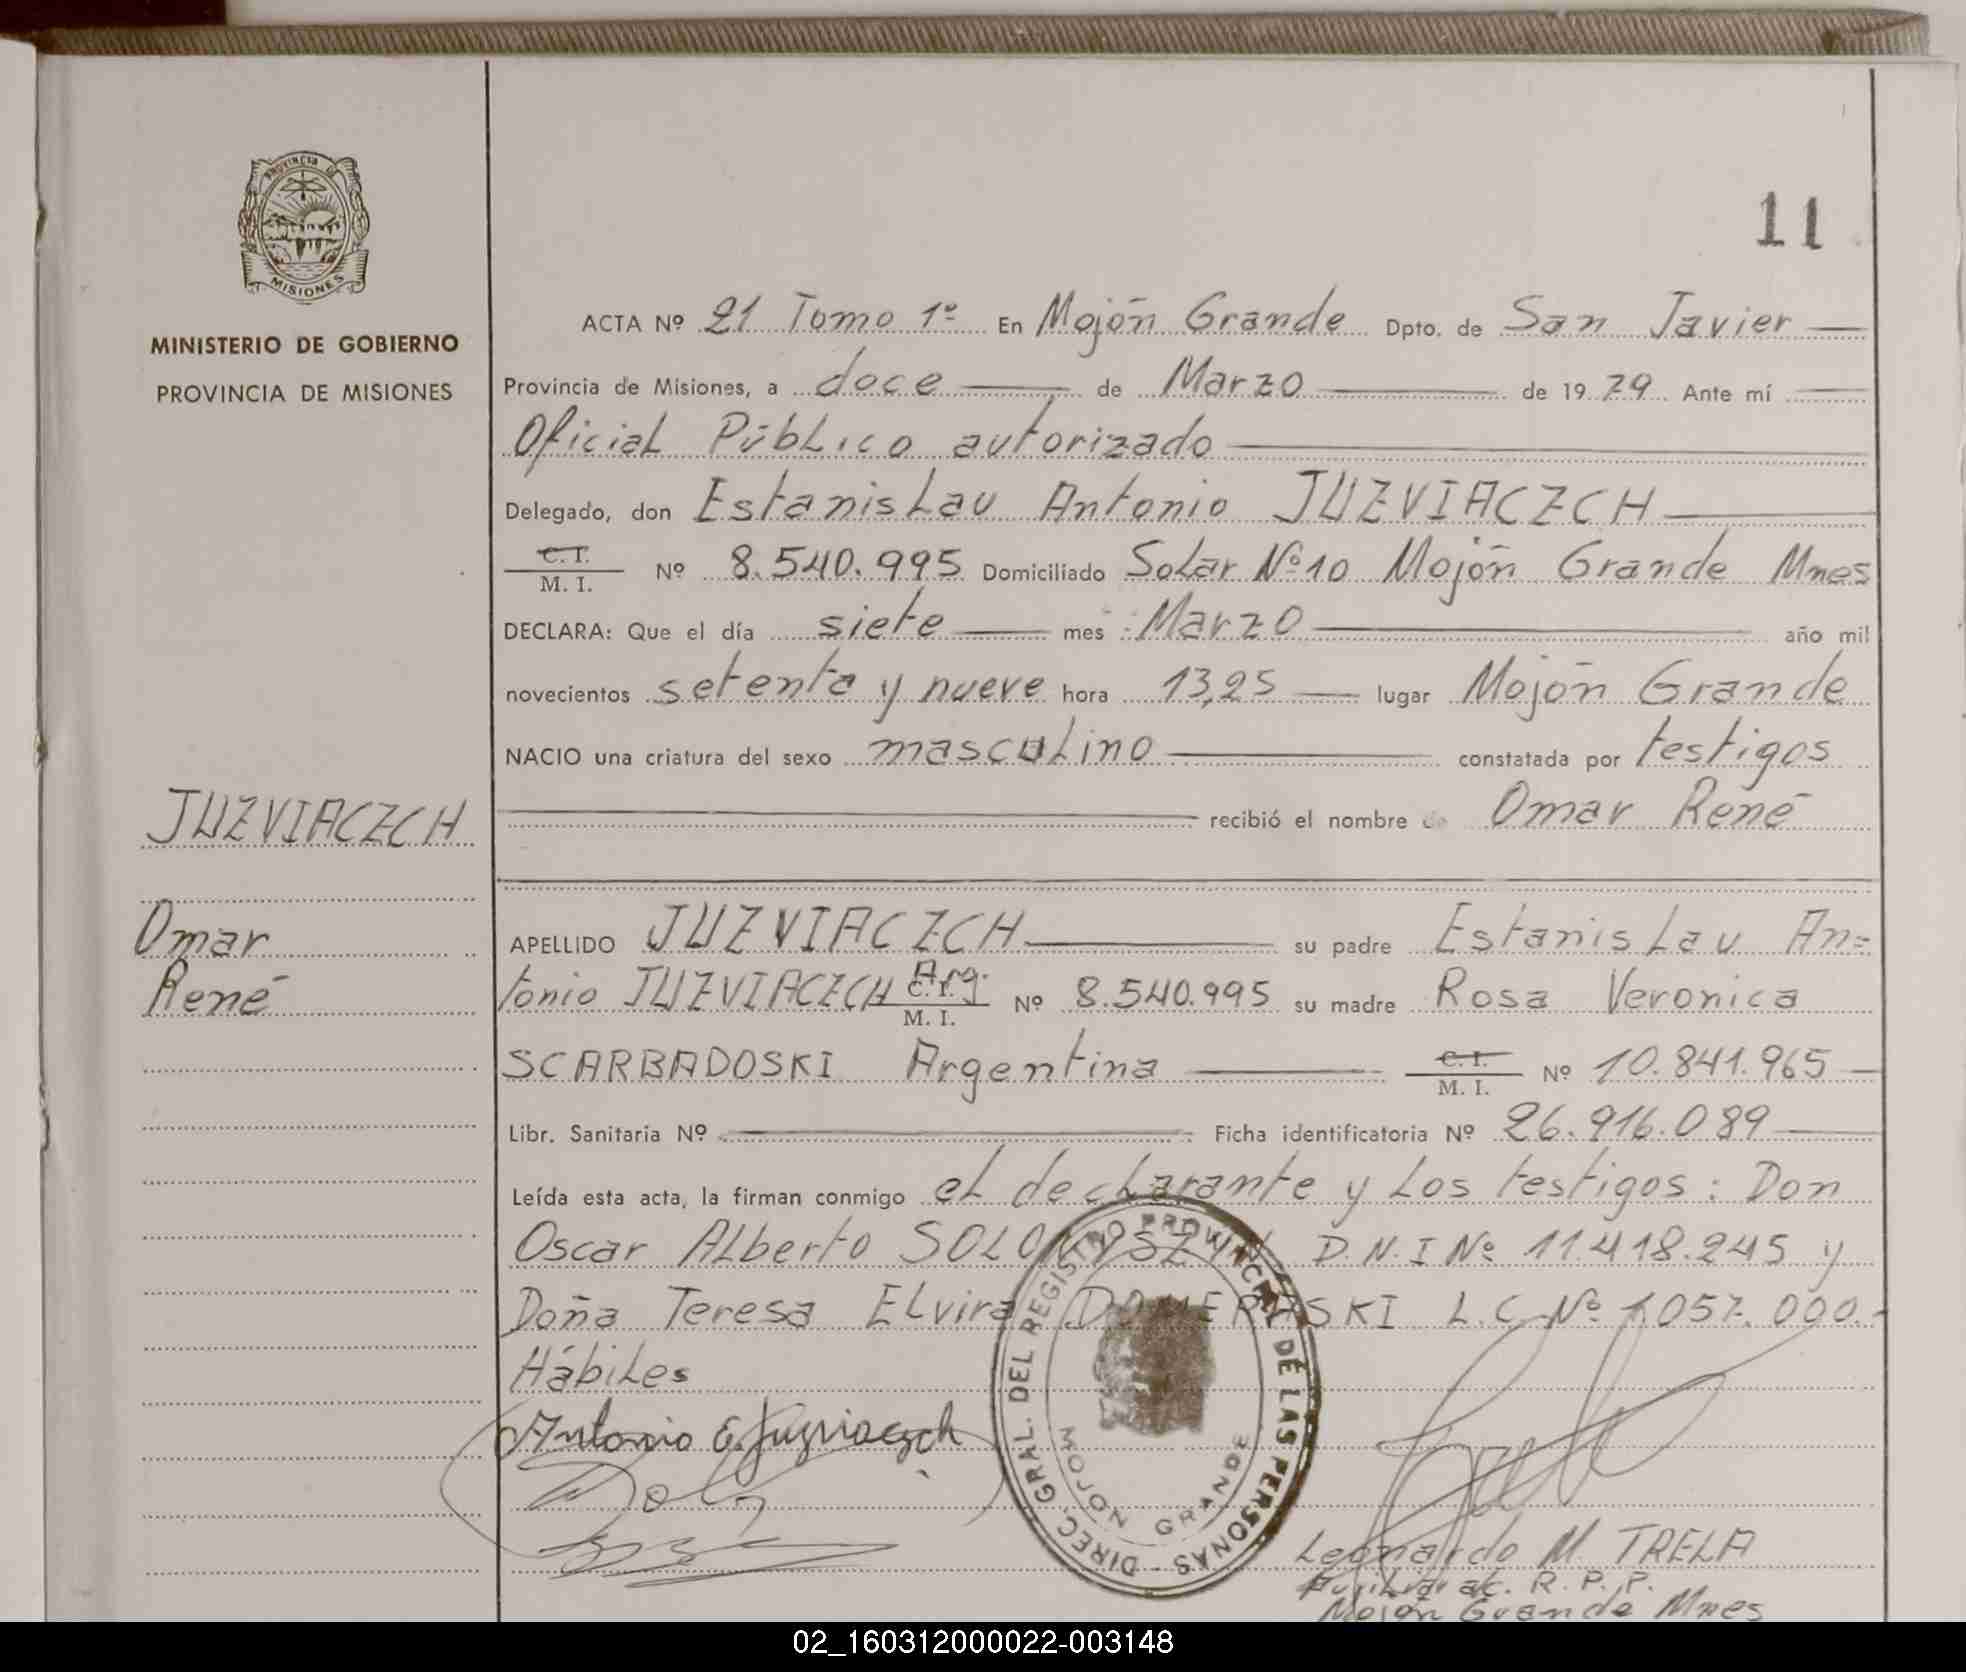 11
PROVINCIA DE
MISIONES
MINISTERIO DE GOBIERNO
PROVINCIA DE MISIONES
JUZVIACZCH
Omar
René
ACTA Nº 21 Tomo 1º En Mojón Grande Dpto. de San Javier
Provincia de Misiones, a doce de Marzo de 1979. Ante mí
Oficial Público autorizado
Delegado, don Estanislau Antonio JUZVIACZCH
C. I. / M. I. Nº 8.540.995 Domiciliado Solar Nº 10 Mojón Grande Mnes
DECLARA: Que el día siete mes Marzo año mil
novecientos setenta y nueve hora 13,25 lugar Mojón Grande
NACIO una criatura del sexo masculino constatada por testigos
recibió el nombre de Omar René
APELLIDO JUZVIACZCH su padre Estanislau An=
tonio JUZVIACZCH Arg. C. I. / M. I. Nº 8.540.995 su madre Rosa Veronica
SCARBADOSKI Argentina C. I. / M. I. Nº 10.841.965
Libr. Sanitaria Nº Ficha identificatoria Nº 26.916.089
Leída esta acta, la firman conmigo el declarante y los testigos: Don
Oscar Alberto D.N.I Nº 11.418.245 y
Doña Teresa Elvira L.C. Nº 1.057.000.-
Hábiles
Antonio E. Juzviaczch
DIREC. GRAL. DEL REGISTRO PROVINCIAL DE LAS PERSONAS -
MOJON GRANDE
Leonardo M. TRELA
R. P. P.
Mojón Grande Mnes
02_160312000022-003148